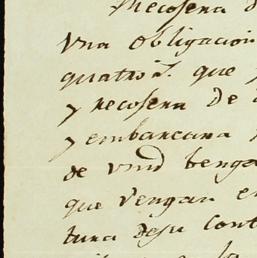 Recosera d
Una obligacion
quatro s. que
y recosera de
y embarcara
de Vmd benga
que Vengan en
tura desu cont